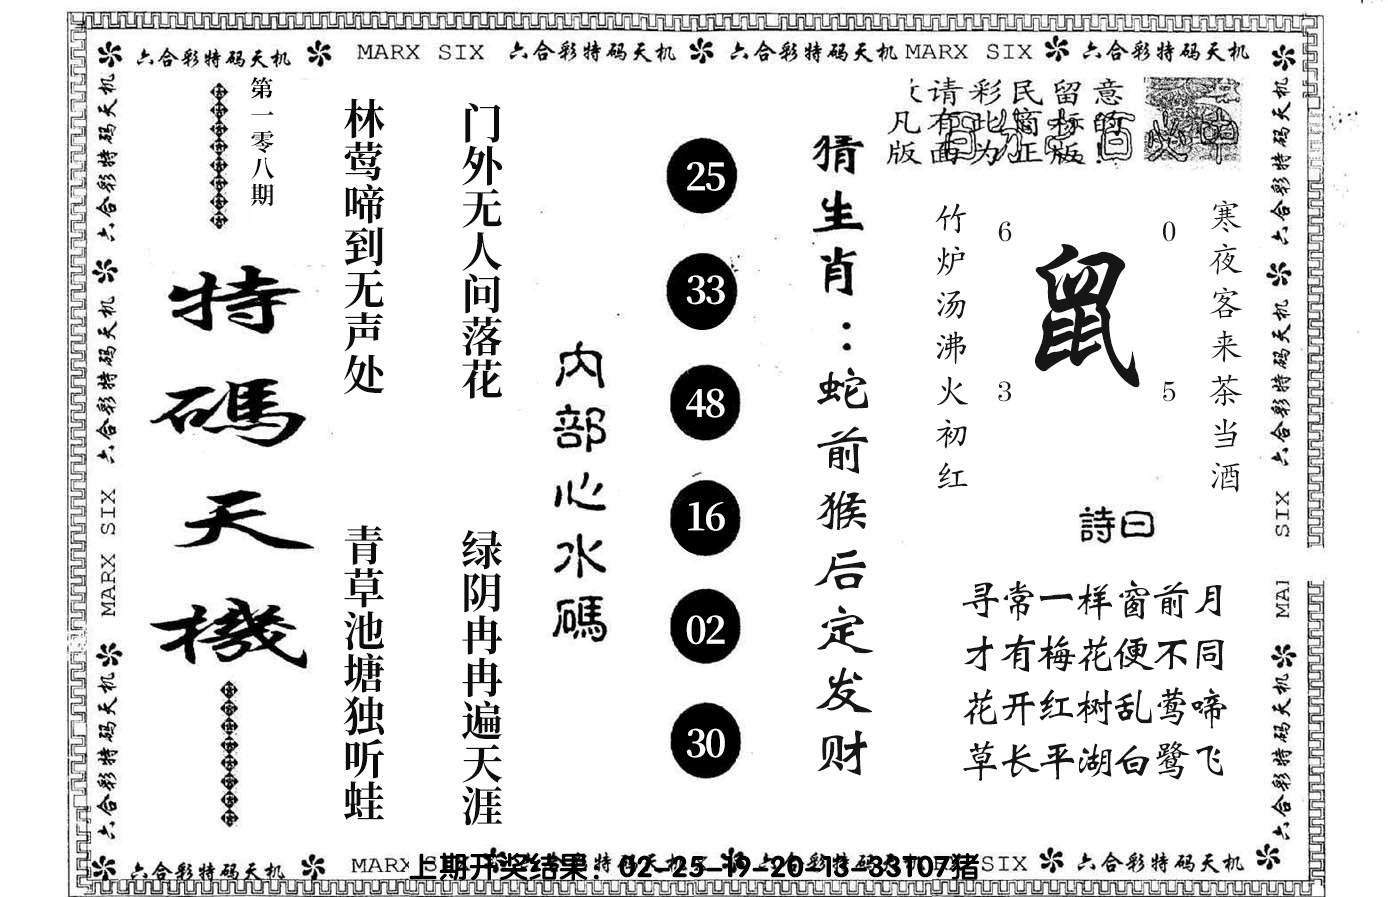 六合彩特码天机 MARX SIX 六合彩特码天机 六合彩特码天机 MARX SIX 六合彩特码天机
六合彩特码天机
六合彩特码天机
MARX SIX
六合彩特码天机
第一零八期
特碼天機
林莺啼到无声处
青草池塘独听蛙
门外无人问落花
绿阴冉冉遍天涯
内部心水碼
25
33
48
16
02
30
猜生肖：蛇前猴后定发财
请彩民留意
凡有此商标的
版面为正版!
寒夜客来茶当酒
竹炉汤沸火初红
6 0
鼠
3 5
詩曰
寻常一样窗前月
才有梅花便不同
花开红树乱莺啼
草长平湖白鹭飞
六合彩特码天机
六合彩特码天机
SIX
MA
六合彩特码天机
六合彩特码天机 MARX
SIX 六合彩特码天机
上期开奖结果：02-25-19-20-13-33T07猪